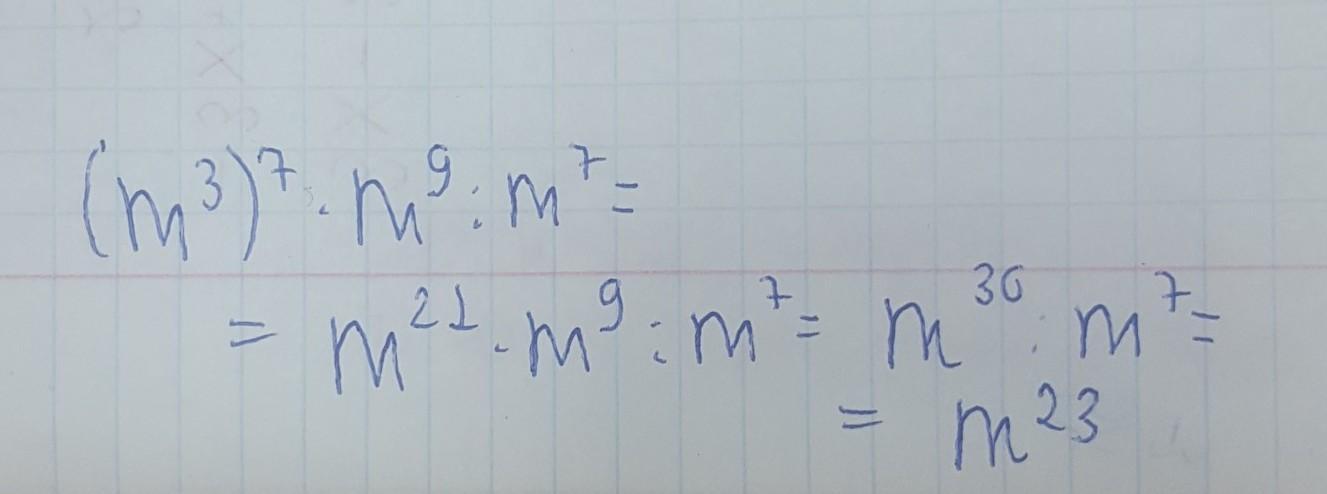 (m³)⁷ · m⁹ : m⁷ =
= m²¹ · m⁹ : m⁷ = m³⁰ : m⁷ =
= m²³